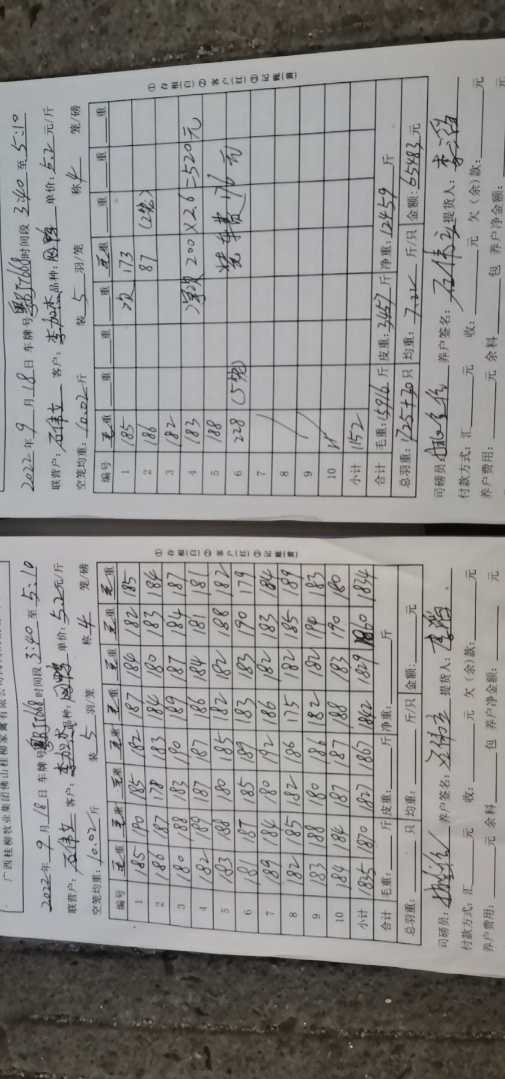 广西桂柳牧业集团佛山桂柳家禽有限公司
2022年9月18日 车牌号 时间段3:40至5:10
联营户:石伟立 客户:李加杰 品种: 单价:5.2元/斤
空笼均重:10.02斤 装5羽/笼 称4笼/磅
编号 毛重 毛重 毛重 毛重 毛重 毛重 毛重 毛重
1 185 190 185 182 187 186 182 185
2 186 187 178 183 184 180 183 184
3 180 188 183 190 189 187 184 187
4 182 189 187 187 186 184 181 181
5 183 188 180 185 182 182 188 182
6 181 187 185 189 183 183 190 179
7 189 184 180 192 186 182 183 184
8 182 185 182 186 175 182 185 189
9 183 188 180 186 182 182 194 183
10 184 184 187 187 188 183 190 180
小计 1835 1870 1827 1867 1842 1829 1860 1834
合计 毛重: 斤 皮重: 斤 净重: 斤
总羽重: 只 均重: 斤/只 金额: 元
司磅员: 养户签名:石伟立 提货人:
付款方式:汇 元 收: 元 欠(余)款: 元
养户费用: 元 余料 包 养户净金额: 元
①存根(白)②客户(红)③记账(黄)
2022年9月18日 车牌号 时间段3:40至5:10
联营户:石伟立 客户:李加杰 品种: 单价:5.2元/斤
空笼均重:10.02斤 装5羽/笼 称4笼/磅
编号 毛重 重 重 毛重 重 重 重
1 185 次 173
2 186 87 (2笼)
3 182
4 183 200×2.6=520元
5 188
6 228 (5笼) 装车费176元
7
8
9
10
小计 1152
合计 毛重:15916斤 皮重:3457斤 净重:12459斤
总羽重:1725+30只 均重:7.22斤/只 金额:65483元
司磅员: 养户签名:石伟立 提货人:
付款方式:汇 元 收: 元 欠(余)款: 元
养户费用: 元 余料 包 养户净金额: 元
①存根(白)②客户(红)③记账(黄)